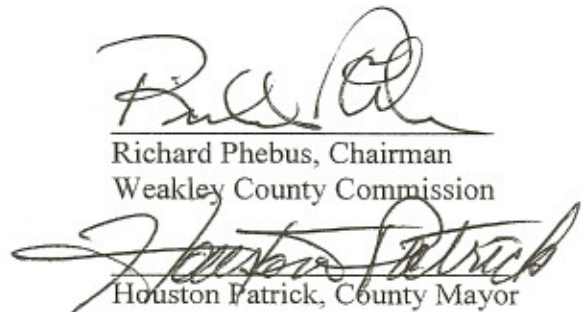 Richard Phebus, Chairman
Weakley County Commission
Houston Patrick
Houston Patrick, County Mayor